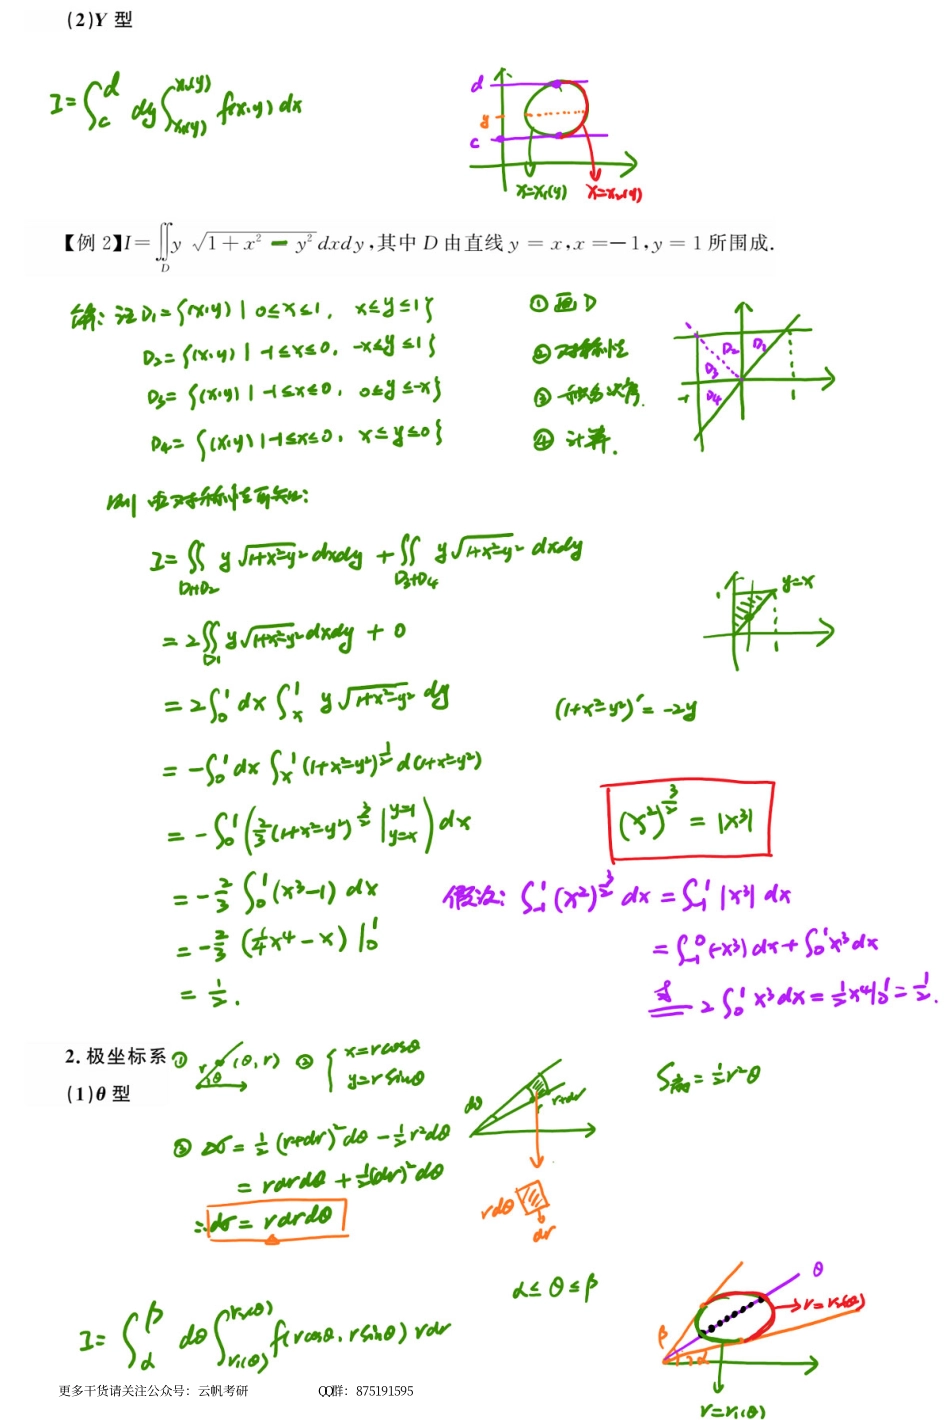 (2)Y 型
I=∫_c^d dy∫_{x₁(y)}^{x₂(y)} f(x,y)dx
d
y
c
x=x₁(y) x=x₂(y)
【例 2】I=∬_D y √(1+x²-y²) dxdy,其中 D 由直线 y = x,x =-1,y = 1 所围成.
解: 记D₁={(x,y) | 0≤x≤1, x≤y≤1}
D₂={(x,y) | -1≤x≤0, -x≤y≤1}
D₃={(x,y) | -1≤x≤0, 0≤y≤-x}
D₄={(x,y) | -1≤x≤0, x≤y≤0}
① 画D
② 对称性
③ 积分次序.
④ 计算.
D₂ D₁
D₃
D₄
-1 1
则 由对称性可知:
I=∬_{D₁+D₂} y√(1+x²-y²) dxdy +∬_{D₃+D₄} y√(1+x²-y²) dxdy
=2∬_{D₁} y√(1+x²-y²)dxdy + 0
1 y=x
1
=2∫₀¹ dx ∫ₓ¹ y√(1+x²-y²) dy
(1+x²-y²)'=-2y
=-∫₀¹dx ∫ₓ¹ (1+x²-y²)^{1/2} d(1+x²-y²)
=-∫₀¹(2/3(1+x²-y²)^{3/2} |_{y=x}^{y=1})dx
(x²)^{3/2} = |x³|
=-2/3 ∫₀¹(x³-1) dx
=-2/3 (1/4x⁴-x) |₀¹
=1/2.
假设: ∫₋₁¹(x²)^{3/2} dx=∫₋₁¹ |x³| dx
=∫₋₁⁰(-x³)dx+∫₀¹x³dx
2∫₀¹ x³dx=1/2x⁴|₀¹=1/2.
2. 极坐标系 ① r θ (θ,r) ② { x=rcosθ
y=rsinθ
(1)θ 型
dθ r r+dr
S扇=1/2r²θ
③ Δσ=1/2(r+dr)²dθ-1/2r²dθ
=rdrdθ+1/2(dr)²dθ
∴dσ=rdrdθ
rdθ
dr
α≤θ≤β
I=∫_α^β dθ∫_{r₁(θ)}^{r₂(θ)} f(rcosθ,rsinθ) rdr
θ
r=r₂(θ)
β
α
r=r₁(θ)
更多干货请关注公众号：云帆考研 QQ群：875191595